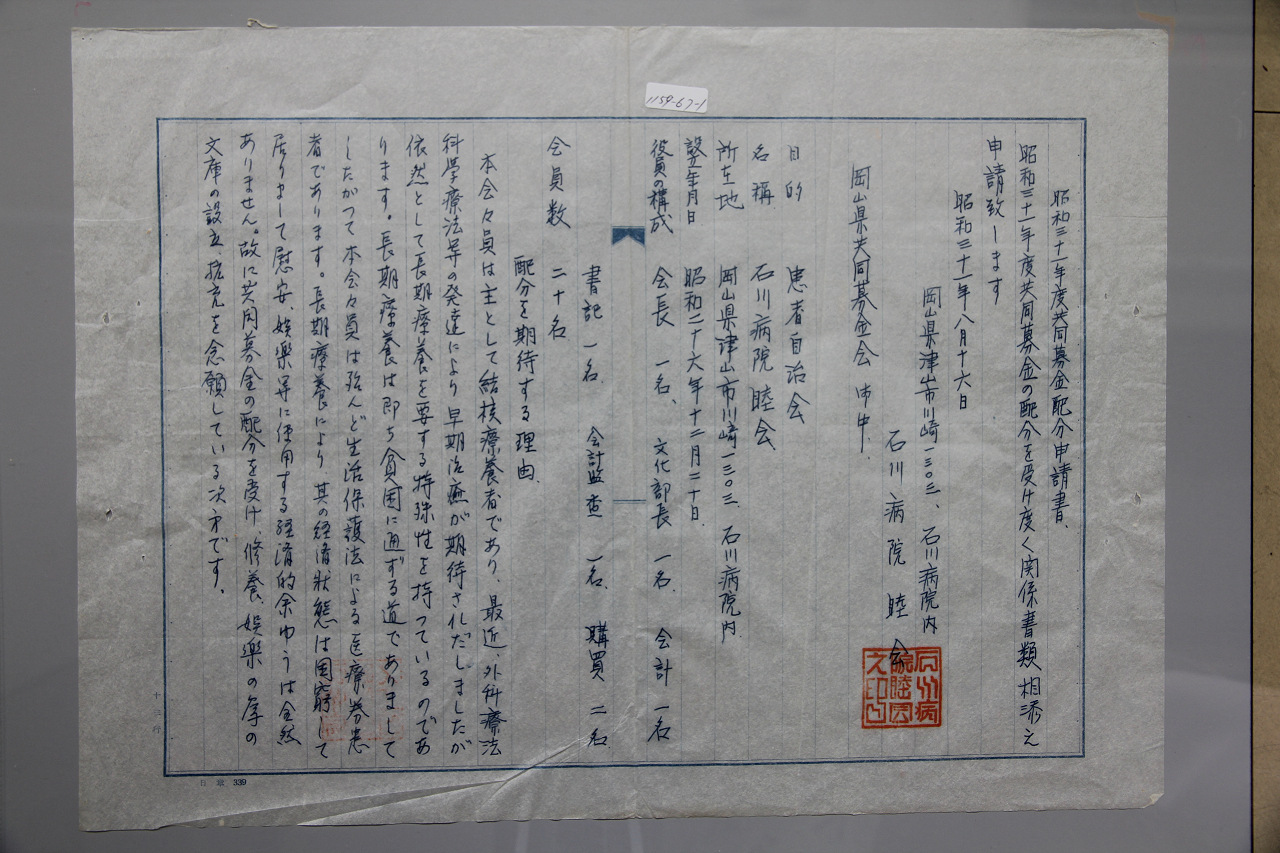 1159-67-1
昭和三十一年度共同募金配分申請書、
昭和三十一年度共同募金の配分を受け度く関係書類相添え
申請致します
昭和三十一年八月十六日
岡山県津山市川崎一三〇三、石川病院内
石川病院睦会
岡山県共同募金会御中、
目的 患者自治会
名稱 石川病院睦会
所在地 岡山県津山市川崎一三〇三、石川病院内
設立年月日 昭和二十六年十二月二十日、
役員の構成 会長 一名、文化部長 一名、会計 一名
書記 一名、会計監査 一名、購買 二名
会員数 二十名
配分を期待する理由、
本会々員は主として結核療養者であり、最近、外科療法
科学療法等の発達により早期治癒が期待されだしましたが
依然として長期療養を要する特殊性を持つているのであ
ります。長期療養は即ち貧困に通ずる道でありまして
したがつて本会々員は殆んど生活保護法による医療券患
者であります。長期療養により、其の経済状態は困窮して
居りまして慰安、娯楽等に使用する経済的余ゆうは全然
ありません。故に共同募金の配分を受け、修養、娯楽の為の
文庫の設立、拡充を念願している次才です。
十行
339